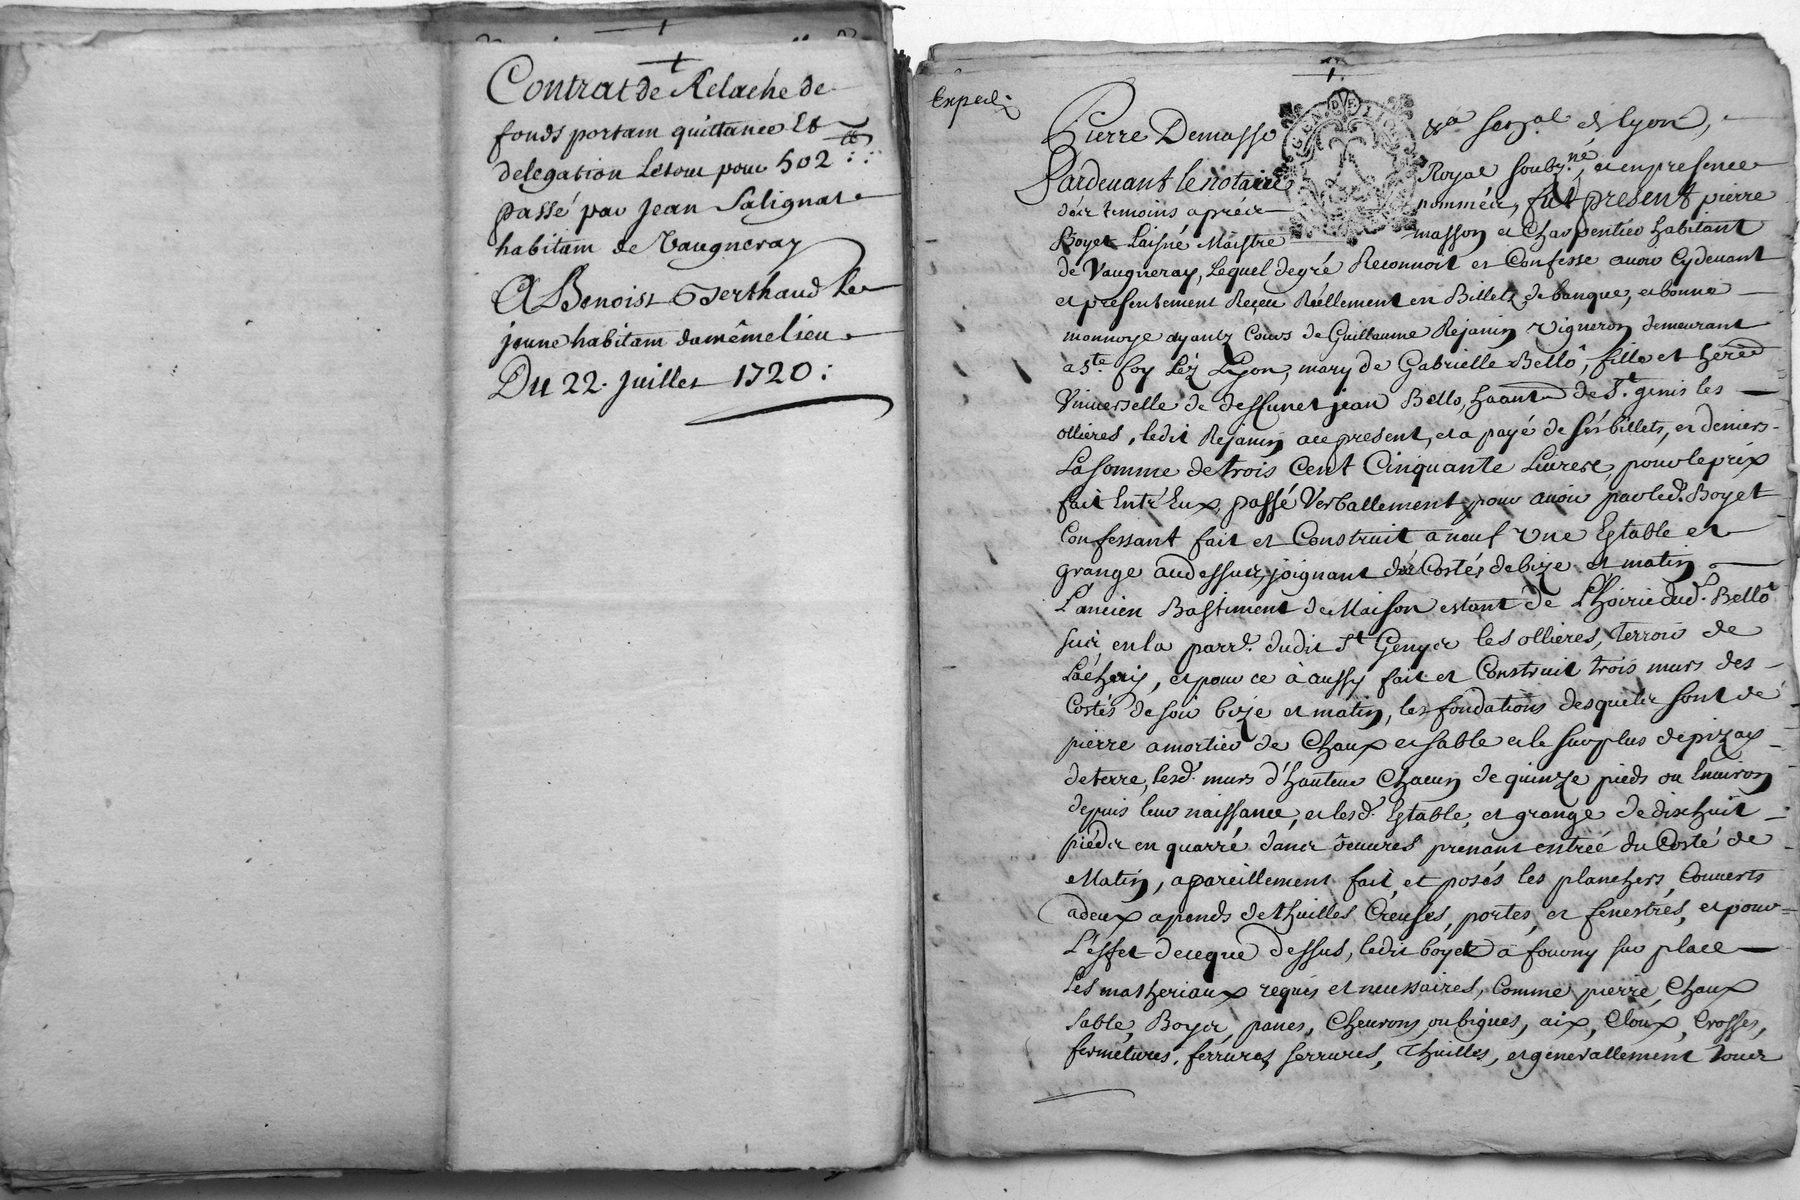 Contrat de Relaché de
fonds portam quittance Et
delegation Letout pour 502 ₶
passé par Jean Salignat
habitam de Vaugneray
A Benoist Berthaud le
jeune habitam dumême lieu
Du 22. Juillet 1720:
Exped.
GEN. DE LION
Pierre Demasso
de Lyon,
Pardevant le notaire Royal soubz.né, et en presence
des temoins aprés nommés, fut present pierre
Boyet Laisné Maistre masson et Charpentier habitant
de Vaugneray, Lequel degré Reconnoit et Confesse avoir Cydevant
et presentement Reçeu Réellement en Billets de banque, et bonne
monnoye ayants Cours de Guillaume Rejanin Vigneron demeurant
a S.te foy Léz Lyon, mary de Gabrielle Bello, fille et héréd.
Universelle de deffunct jean Bello, hantt de S.t genis les
ollieres, ledit Rejanin ace present, et a payé de ses billets, et deniers
La somme de trois Cent Cinquante Livres, pour le prix
fait Entr'Eux, passé Verballement pour avoir par led. Boyet
Confessant fait et Construit a neuf Une Estable et
grange audessus, joignant des Costés de bize et matin
L'ancien Bastiment de Maison estant de L'hoirie dud. Bello
sur, en la parr.e dudit S.t Genys les ollieres, terroir de
et pour ce à aussy fait et Construit trois murs des
Costés de soir bize et matin, les fondations desquels sont de
pierre a mortier de Chaux et sable et le surplus de pizay
de terre, lesd. murs d'hauteur Chacun de quinze pieds ou Environ
depuis leur naissance, et lesd. Estable, et grange de dixhuit
piéds en quarré dans oeuvres prenant entrée du Costé de
Matin, apareillement fait, et posés les planchers, Couverts
adeux apends dethuilles Creuses, portes, et fenestres, et pour
L'effet deceque dessus, ledit boyet à fourny sur place
Les matheriaux requis et necessaires, Comme pierre, Chaux
sable, Boys, panes, Chevrons ou bigues, aix, Cloux, Crosses,
fermetures, ferrures, serrures, Thuilles, et generallement tous